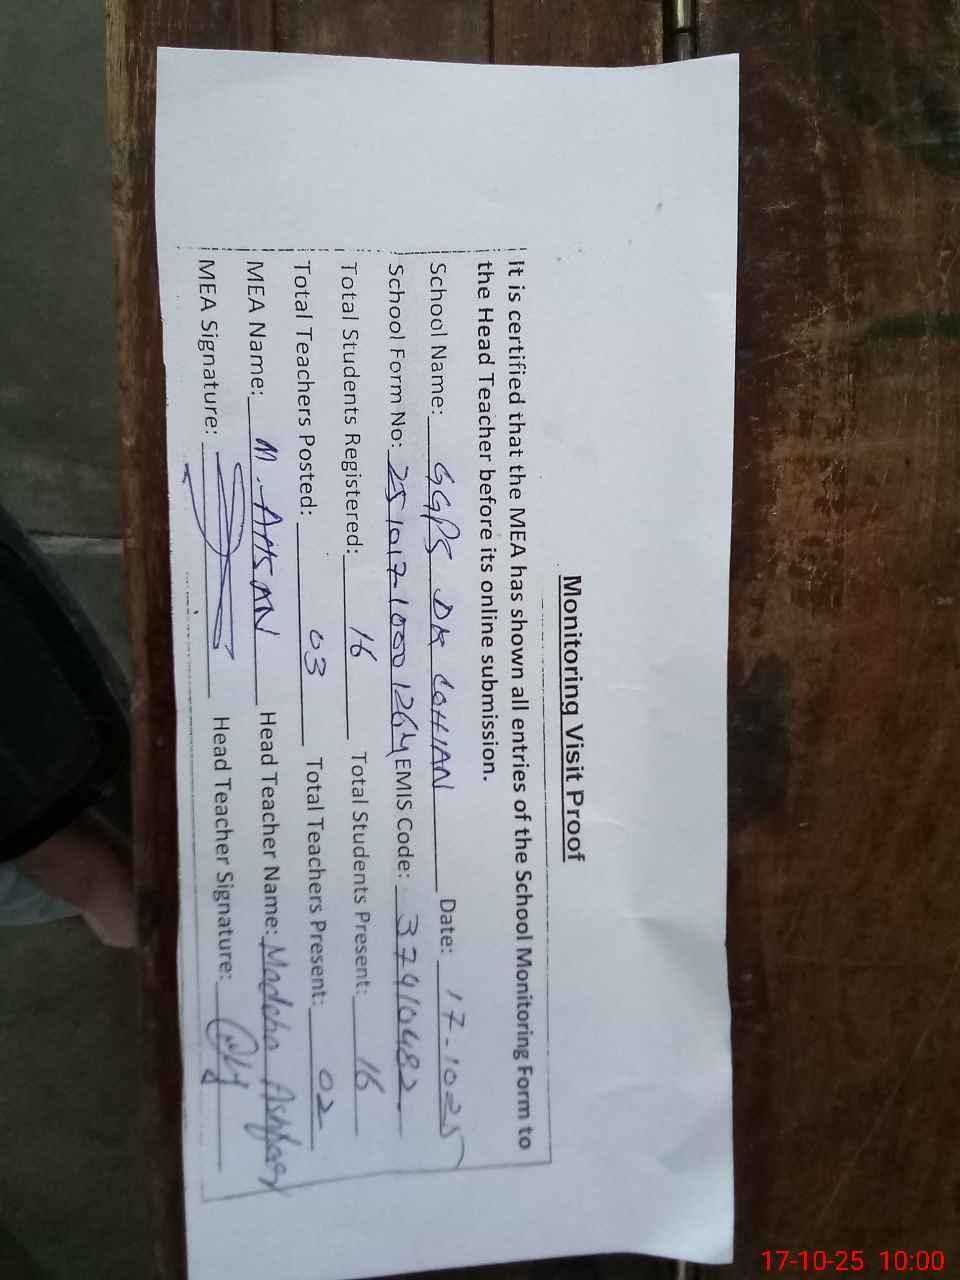 Monitoring Visit Proof
It is certified that the MEA has shown all entries of the School Monitoring Form to
the Head Teacher before its online submission.
School Name: GGPS DK COHIAN Date: 17-1025
School Form No: 25101710001264 EMIS Code: 37410482
Total Students Registered: 16 Total Students Present: 16
Total Teachers Posted: 03 Total Teachers Present: 02
MEA Name: M. AHSAN Head Teacher Name: Madeha Ashfaq
MEA Signature: Head Teacher Signature:
17-10-25 10:00